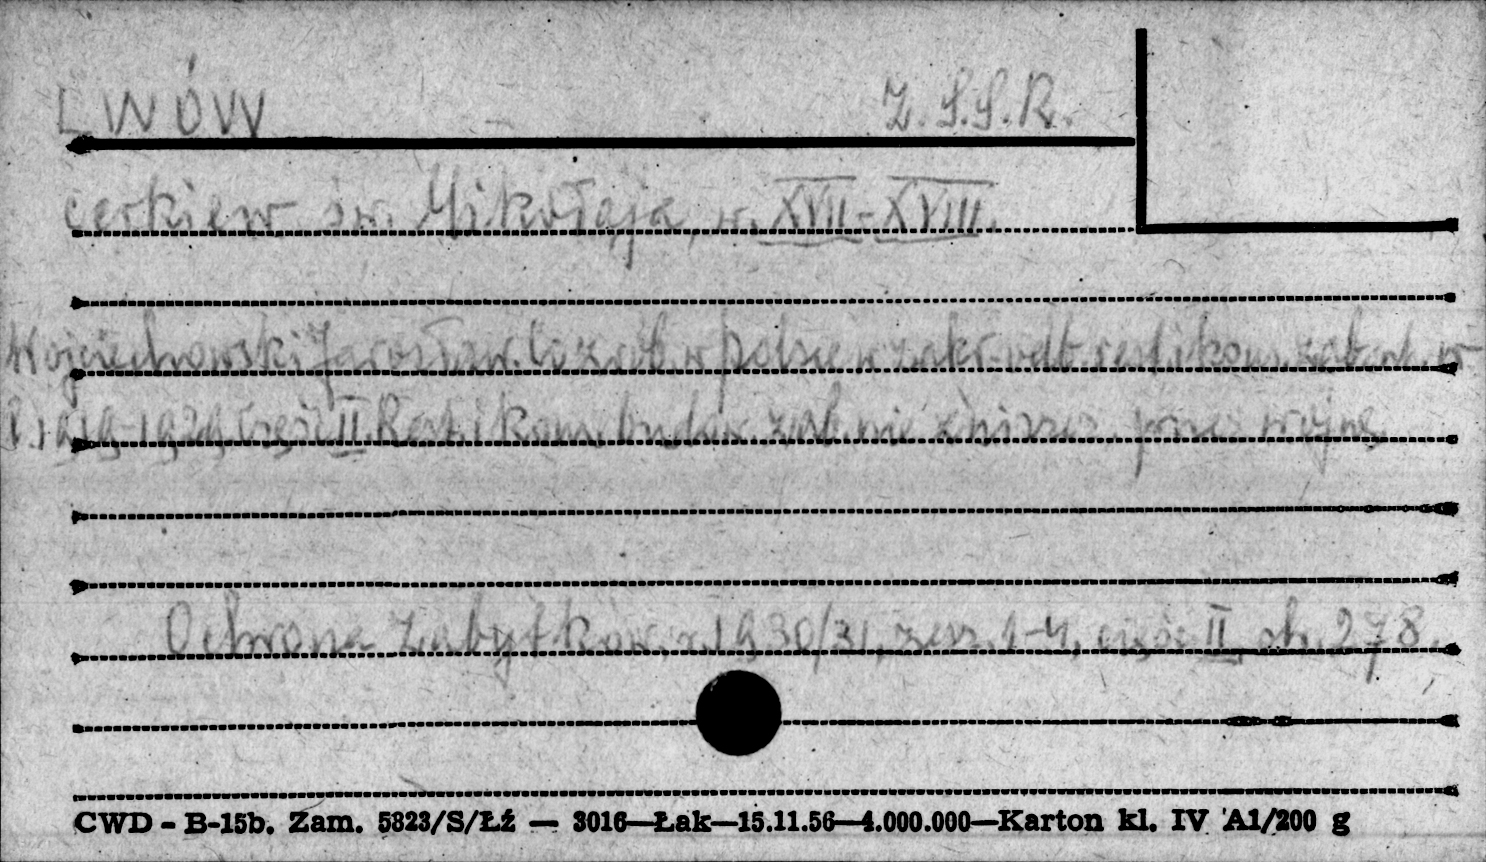 LWÓW Z.S.S.R.
cerkiew św. Mikołaja, w. XVII-XVIII.
Wojciechowski Jarosław. Co zrob. w Polsce w zakr. odb. rest. i kons. zabytk. w
l. 1919-1929 Część II Rest. i kons. budow. zab. nie zniszcz. przez wojnę,
Ochrona Zabytków, r. 1930/31, zesz. 1-4, część II, str. 278.
CWD - B-15b. Zam. 5823/S/Łź — 3016—Łak—15.11.56—4.000.000—Karton kl. IV A1/200 g